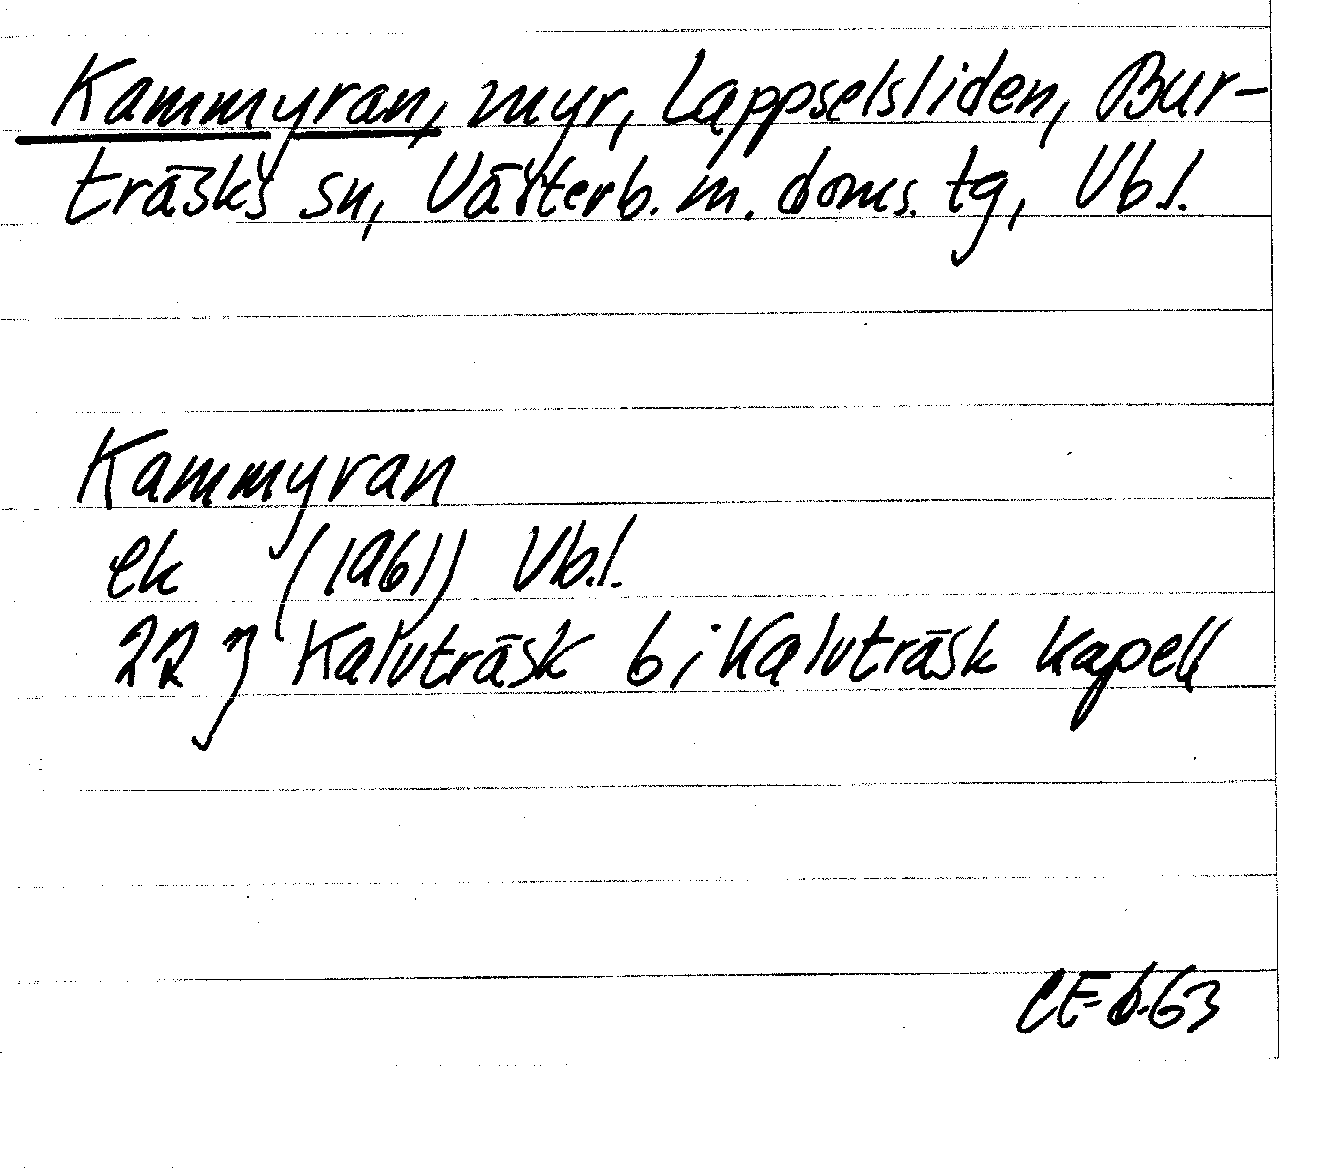 Kammyran, myr, Lappselsliden, Bur-
träsks sn, Västerb. m. doms. tg, Vb.l.
Kammyran
ek (1961) Vb.l.
22 J Kalvträsk b; Kalvträsk kapell
CE 6.63